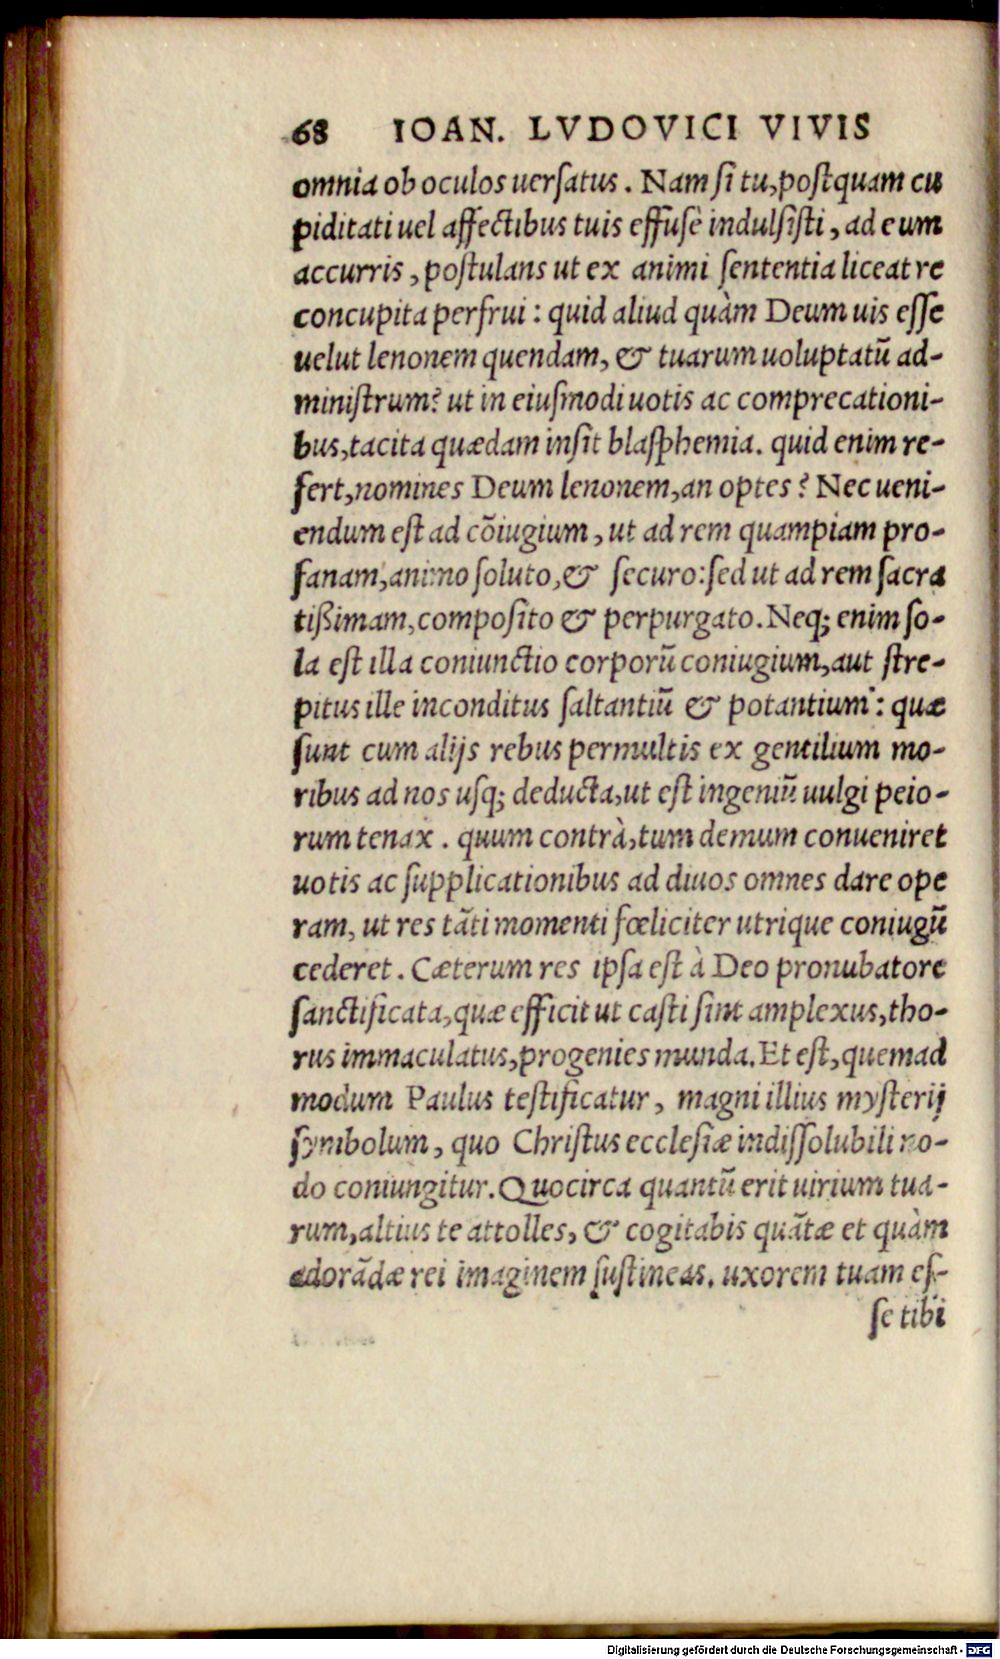 68 IOAN. LVDOVICI VIVIS
omnia ob oculos uerſatus. Nam ſi tu, poſtquam cu
piditati uel affectibus tuis effuſè indulſiſti, ad eum
accurris, poſtulans ut ex animi ſententia liceat re
concupita perfrui: quid aliud quàm Deum uis eſſe
uelut lenonem quendam, & tuarum uoluptatū ad-
miniſtrum? ut in eiuſmodi uotis ac comprecationi-
bus, tacita quædam inſit blaſphemia. quid enim re-
fert, nomines Deum lenonem, an optes? Nec ueni-
endum eſt ad cōiugium, ut ad rem quampiam pro-
fanam, animo ſoluto, & ſecuro: ſed ut ad rem ſacra
tißimam, compoſito & perpurgato. Neq; enim ſo-
la eſt illa coniunctio corporū coniugium, aut ſtre-
pitus ille inconditus ſaltantiū & potantium: quæ
ſunt cum alijs rebus permultis ex gentilium mo-
ribus ad nos uſq; deducta, ut eſt ingeniū uulgi peio-
rum tenax. quum contrà, tum demum conueniret
uotis ac ſupplicationibus ad diuos omnes dare ope
ram, ut res tāti momenti fœliciter utrique coniugū
cederet. Cæterum res ipſa eſt à Deo pronubatore
ſanctificata, quæ efficit ut caſti ſint amplexus, tho-
rus immaculatus, progenies munda. Et eſt, quemad
modum Paulus teſtificatur, magni illius myſterij
ſymbolum, quo Chriſtus eccleſiæ indiſſolubili no-
do coniungitur. Quocirca quantū erit uirium tua-
rum, altius te attolles, & cogitabis quātæ et quàm
adorādæ rei imaginem ſuſtineas. uxorem tuam eſ-
ſe tibi
Digitalisierung gefördert durch die Deutsche Forschungsgemeinschaft - DFG